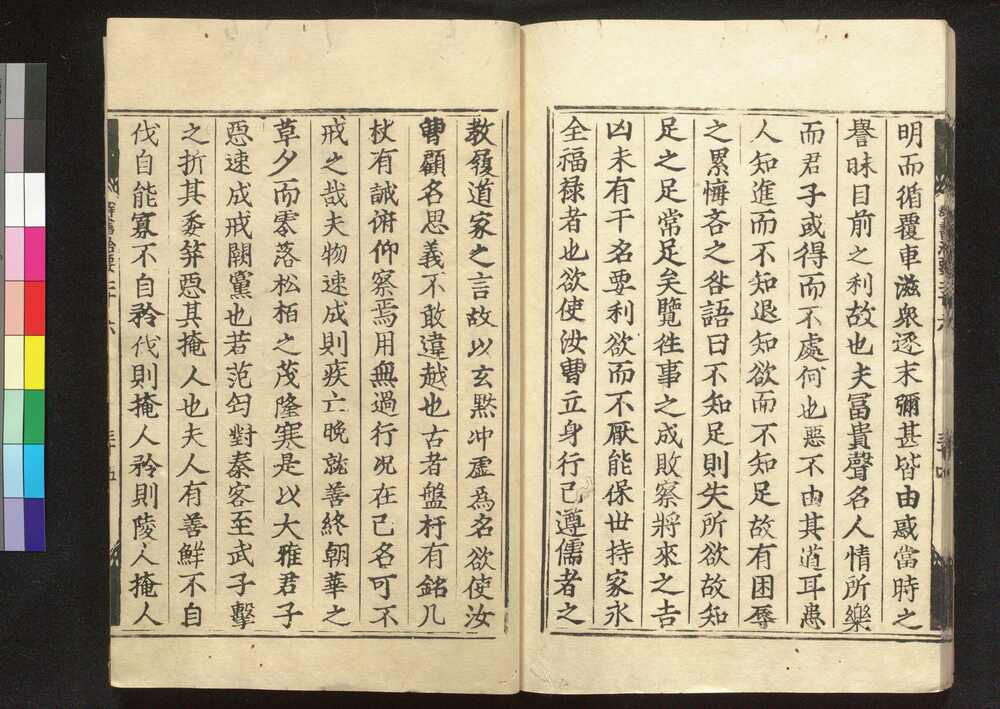 明而循覆車滋衆逐末彌甚皆由惑當時之
譽昧目前之利故也夫冨貴聲名人情所樂
而君子或得而不處何也惡不由其道耳患
人知進而不知退知欲而不知足故有困辱
之累悔吝之咎語曰不知足則失所欲故知
足之足常足矣覽徃事之成敗察將來之吉
凶未有干名要利欲而不厭能保世持家永
全福禄者也欲使汝曹立身行己遵儒者之
教履道家之言故以玄黙冲虚為名欲使汝
曹顧名思義不敢違越也古者盤杅有銘几
杖有誡俯仰察焉用無過行况在己名可不
戒之哉夫物速成則疾亡晚就善終朝華之
草夕而零落松栢之茂隆寒是以大雅君子
惡速成戒闕黨也若范匄對秦客至武子擊
之折其委笄惡其掩人也夫人有善鮮不自
伐自能寡不自矜伐則掩人矜則陵人掩人